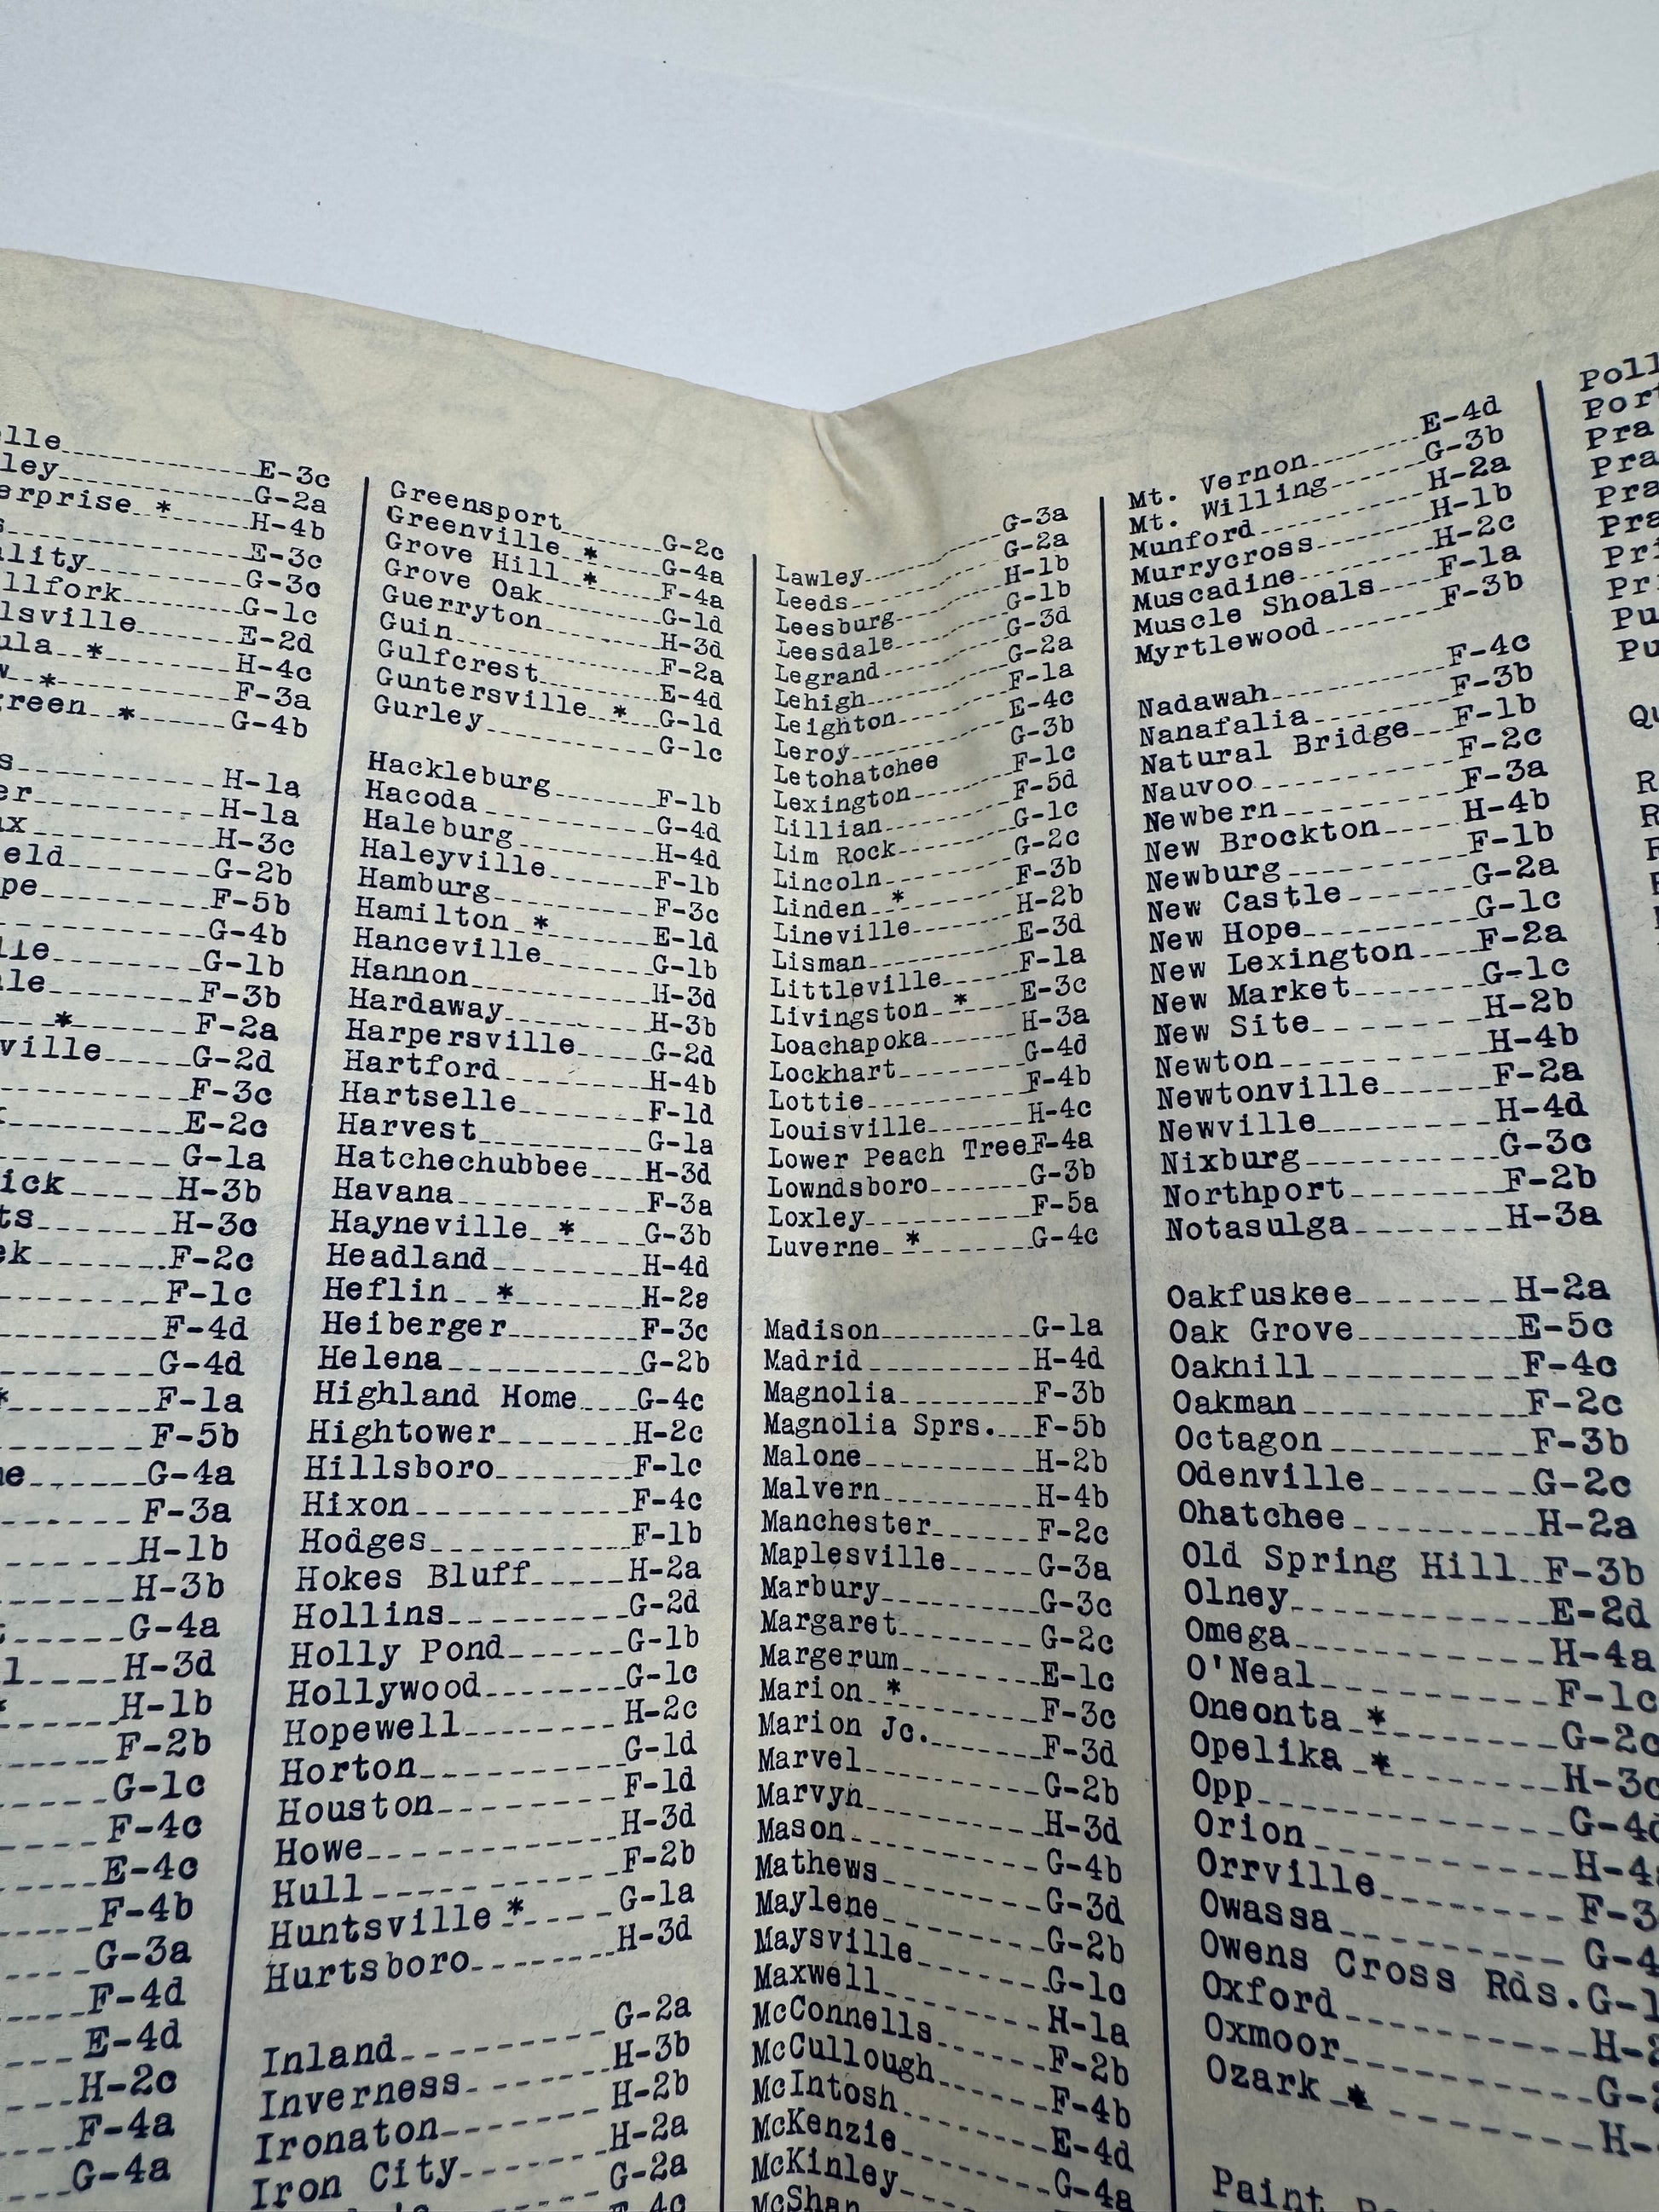 lle E-3c
ley G-2a
erprise * H-4b
s E-3c
ality G-3c
llfork G-1c
lsville E-2d
ula * H-4c
w * F-3a
green * G-4b
s H-1a
er H-1a
ax H-3c
eld G-2b
pe F-5b
G-4b
lle G-1b
le F-3b
* F-2a
ville G-2d
F-3c
E-2c
G-1a
ick H-3b
ts H-3c
ek F-2c
F-1c
F-4d
G-4d
* F-1a
F-5b
ne G-4a
F-3a
H-1b
H-3b
t G-4a
l H-3d
* H-1b
F-2b
G-1c
F-4c
E-4c
F-4b
G-3a
F-4d
E-4d
H-2c
F-4a
G-4a
Greensport G-2c
Greenville * G-4a
Grove Hill * F-4a
Grove Oak G-1d
Guerryton H-3d
Guin F-2a
Gulfcrest E-4d
Guntersville * G-1d
Gurley G-1c
Hackleburg F-1b
Hacoda G-4d
Haleburg H-4d
Haleyville F-1b
Hamburg F-3c
Hamilton * E-1d
Hanceville G-1b
Hannon H-3d
Hardaway H-3b
Harpersville G-2d
Hartford H-4b
Hartselle F-1d
Harvest G-1a
Hatchechubbee H-3d
Havana F-3a
Hayneville * G-3b
Headland H-4d
Heflin * H-2a
Heiberger F-3c
Helena G-2b
Highland Home G-4c
Hightower H-2c
Hillsboro F-1c
Hixon F-4c
Hodges F-1b
Hokes Bluff H-2a
Hollins G-2d
Holly Pond G-1b
Hollywood G-1c
Hopewell H-2c
Horton G-1d
Houston F-1d
Howe H-3d
Hull F-2b
Huntsville * G-1a
Hurtsboro H-3d
Inland G-2a
Inverness H-3b
Ironaton H-2b
Iron City H-2a
G-2a
Lawley G-3a
Leeds G-2a
Leesburg H-1b
Leesdale G-1b
Legrand G-3d
Lehigh G-2a
Leighton F-1a
Leroy E-4c
Letohatchee G-3b
Lexington F-1c
Lillian F-5d
Lim Rock G-1c
Lincoln G-2c
Linden * F-3b
Lineville H-2b
Lisman E-3d
Littleville F-1a
Livingston * E-3c
Loachapoka H-3a
Lockhart G-4d
Lottie F-4b
Louisville H-4c
Lower Peach Tree F-4a
Lowndsboro G-3b
Loxley F-5a
Luverne * G-4c
Madison G-1a
Madrid H-4d
Magnolia F-3b
Magnolia Sprs. F-5b
Malone H-2b
Malvern H-4b
Manchester F-2c
Maplesville G-3a
Marbury G-3c
Margaret G-2c
Margerum E-1c
Marion * F-3c
Marion Jc. F-3d
Marvel G-2b
Marvyn H-3d
Mason G-4b
Mathews G-3d
Maylene G-2b
Maysville G-1c
Maxwell H-1a
McConnells F-2b
McCullough F-4b
McIntosh E-4d
McKenzie G-4a
McKinley
McShan
Mt. Vernon E-4d
Mt. Willing G-3b
Munford H-2a
Murrycross H-1b
Muscadine H-2c
Muscle Shoals F-1a
Myrtlewood F-3b
Nadawah F-4c
Nanafalia F-3b
Natural Bridge F-1b
Nauvoo F-2c
Newbern F-3a
New Brockton H-4b
Newburg F-1b
New Castle G-2a
New Hope G-1c
New Lexington F-2a
New Market G-1c
New Site H-2b
Newton H-4b
Newtonville F-2a
Newville H-4d
Nixburg G-3c
Northport F-2b
Notasulga H-3a
Oakfuskee H-2a
Oak Grove E-5c
Oakhill F-4c
Oakman F-2c
Octagon F-3b
Odenville G-2c
Ohatchee H-2a
Old Spring Hill F-3b
Olney E-2d
Omega H-4a
O'Neal F-1c
Oneonta * G-2c
Opelika * H-3c
Opp G-4d
Orion H-4a
Orrville F-3
Owassa G-4
Owens Cross Rds. G-1
Oxford H-2
Oxmoor G-2
Ozark * H-
Paint
Poll
Port
Pra
Pra
Pra
Pra
Pri
Pri
Pu
Pu
Qu
R
R